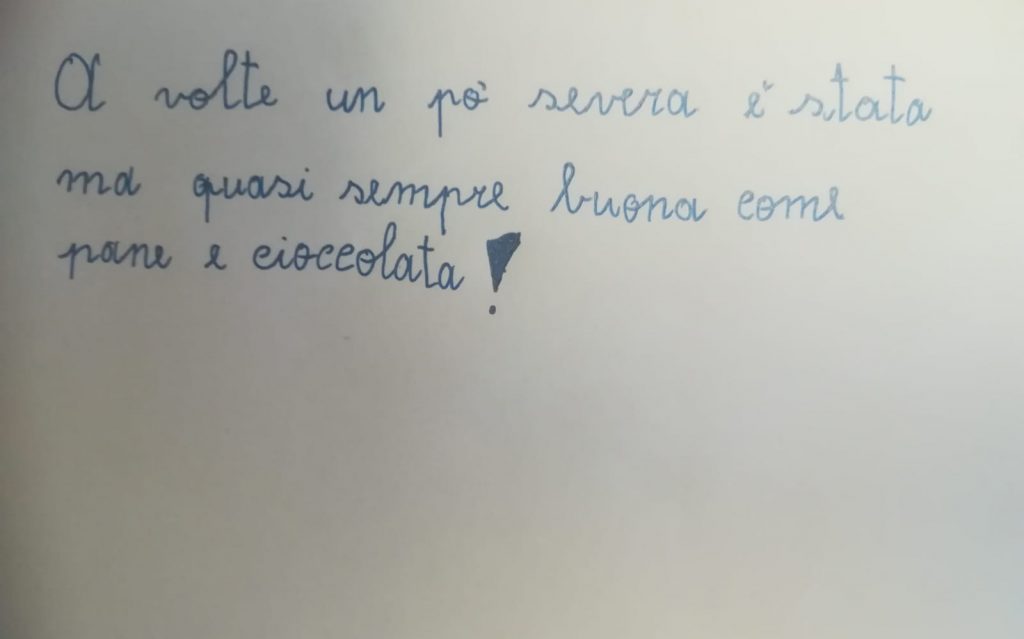 A volte un pò severa è stata
ma quasi sempre buona come
pane e cioccolata!